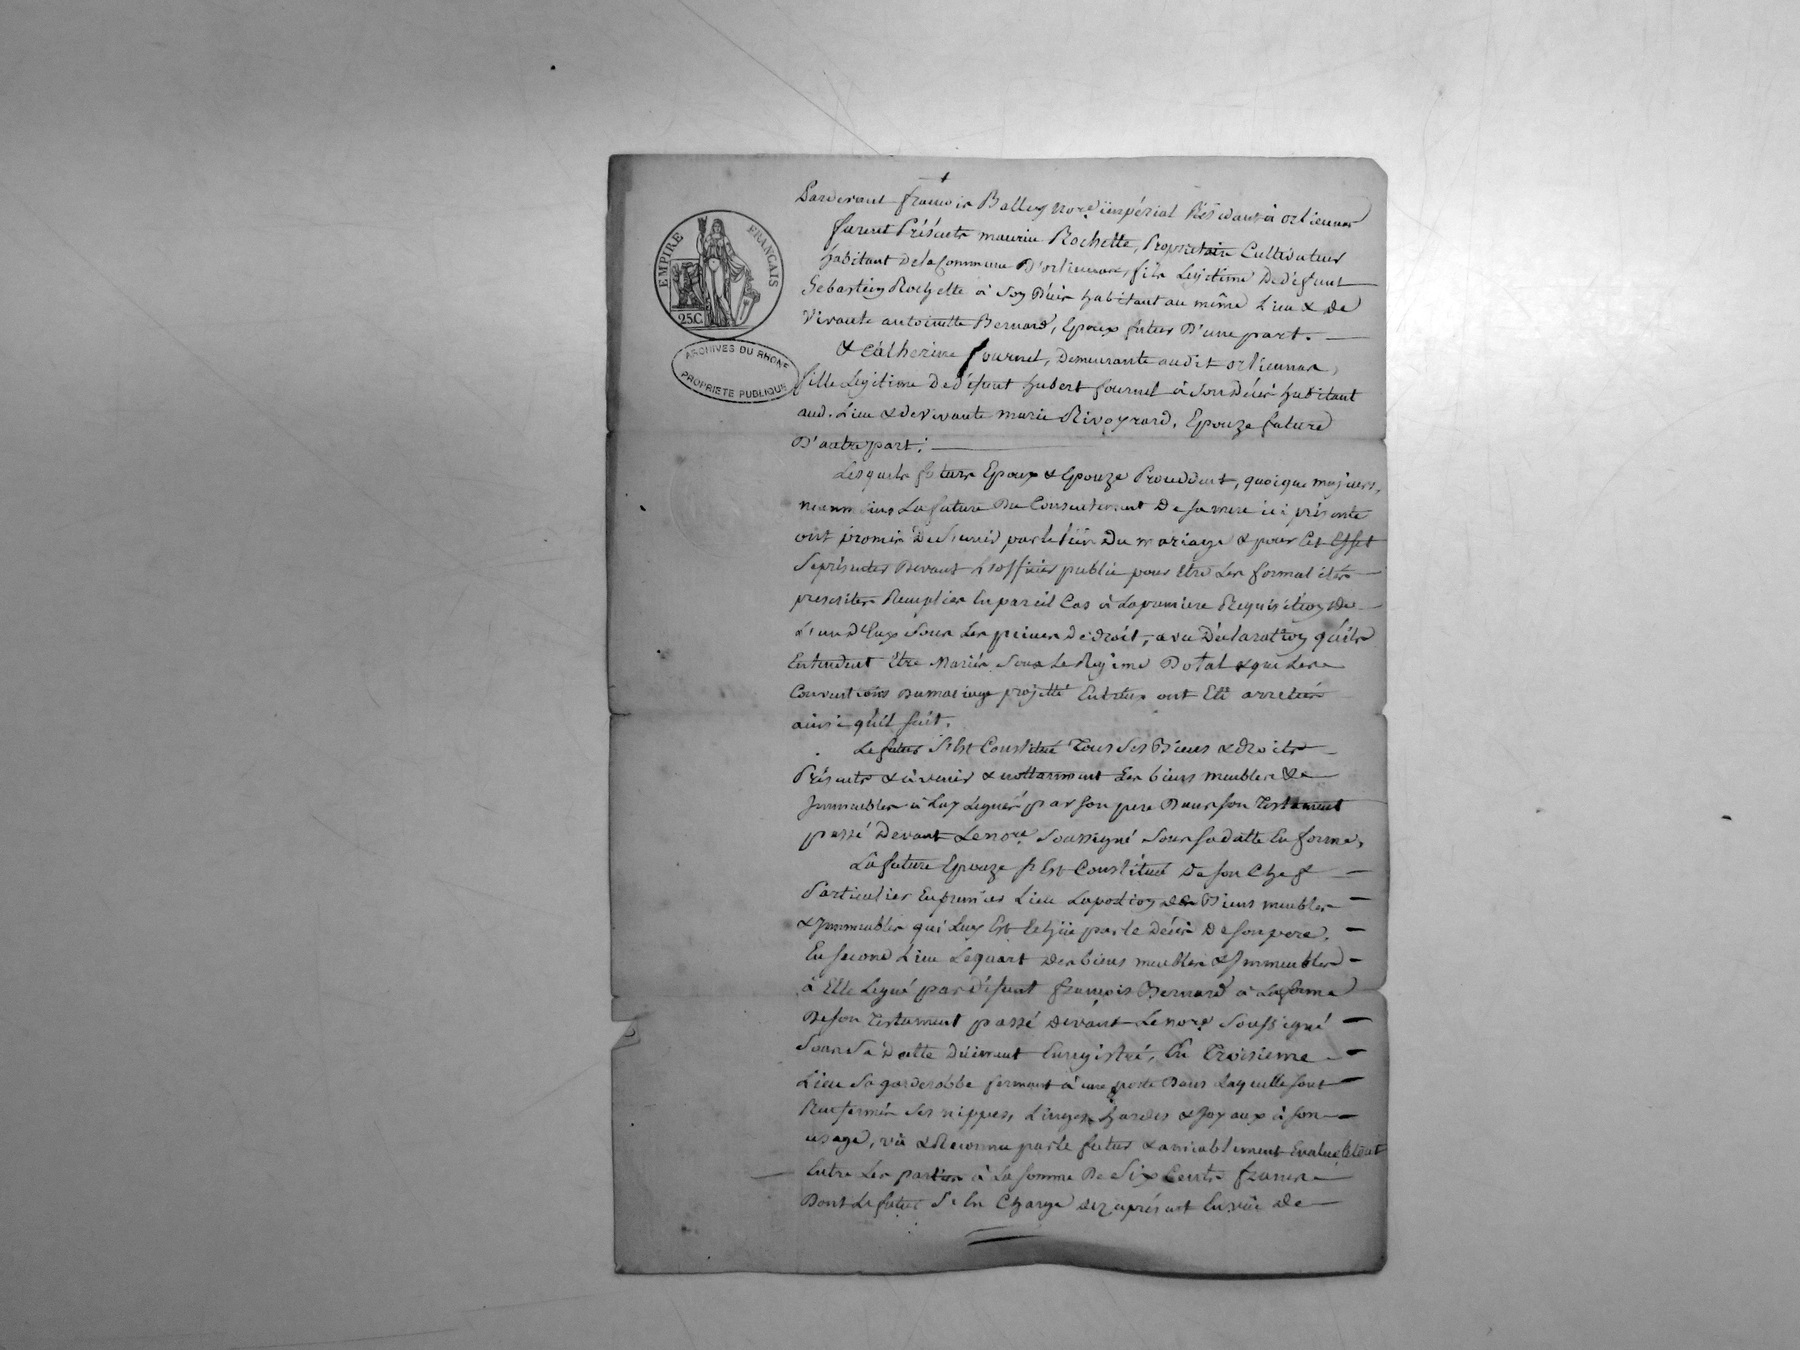 EMPIRE FRANÇAIS
25.C
ARCHIVES DU RHONE
PROPRIETE PUBLIQUE
Pardevant françois Balley nore. impérial Résidant à orlienas
furent Présents maurice Rochette, Proprietaire Cultivateur
habitant De la Commune D'orlienas, fils Legitime De défunt
Sebastien Rochette à Son Décès habitant au même Lieu & de
Vivante antoinette Bernard, Epoux futur D'une part.
& Catherine fournel, Demeurante audit orlienas,
fille Legitime De défunt hubert fournel à Son Décès habitant
aud. Lieu & de vivante marie Rivoyrard, Epouze future
D'autre part.
Lesquels futurs Epoux & Epouze Procedant, quoique majeurs,
neanmoins La future Du Consentement De sa mere ici présente
ont promis De S'unir par le lien Du mariage & pour Cet Effet
Se présenter Devant L'officier public pour Etre Les formalités
prescrites Remplies En pareil Cas à La premiere Requisition De
L'un D'Eux Sous Les peines De droit, avec Déclaration qu'ils
Entendent Etre Mariés Sous Le Regime Dotal & que Les
Conventions Du mariage projetté Entr'eux ont Eté arretées
ainsi qu'il suit.
Le futur S'Est Constitué Tous Ses Biens & droits
Présents & à venir & nottamment Les biens meubles &
Immeubles à Luy Legués par son pere Dans son Testament
passé Devant Le nore. Soussigné Sous sa datte En forme,
La future Epouze S'Est Constitué De son Chef
Particulier En premier Lieu La portion des Biens meubles
& Immeubles qui Luy Est Echüe par le Décès De son pere,
En second Lieu Le quart des biens meubles & Immeubles
à Elle Legué par défunt françois Bernard à La forme
De son Testament passé devant Le nore. Soussigné
Sous Sa Datte Düement Enregistré, En Troisieme
Lieu Sa garderobbe fermant à une porte Dans Laquelle sont
Renfermés Ses nippes, Linges, hardes & Joyaux à son
usage, vû & Reconnu par le futur & amiablement Evalué le tout
Entre Les parties à La somme De Six Cents francs
Dont Le futur Se En Charge dez à présent En vüe de